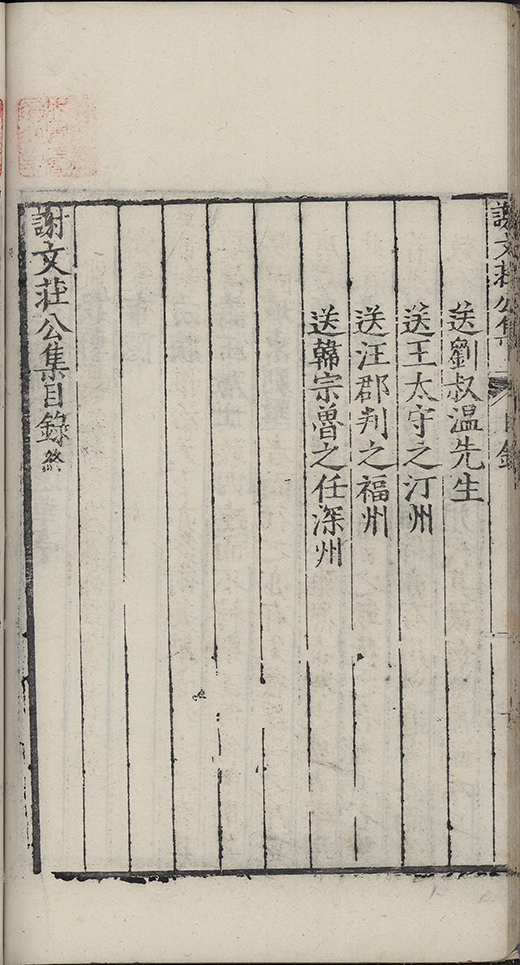 謝文莊公集 目錄
送劉叔溫先生
送王太守之汀州
送汪郡判之福州
送韓宗魯之任深州
謝文莊公集目錄終